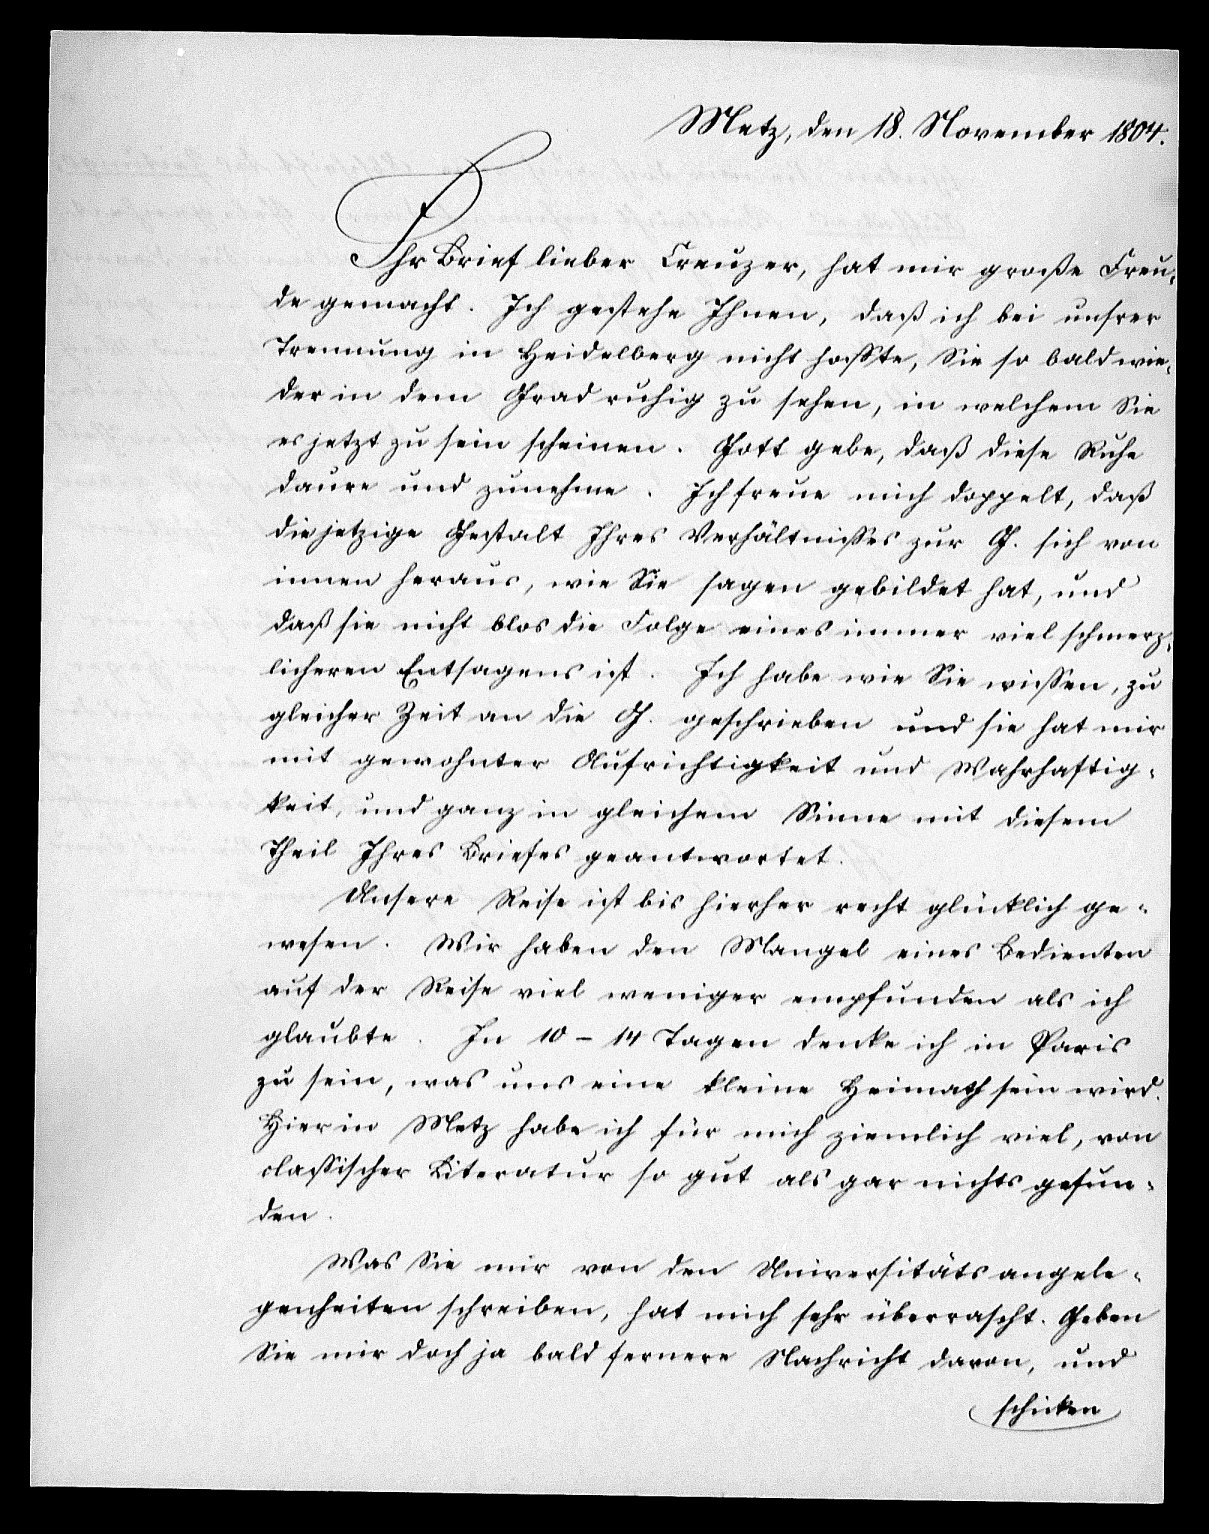 Metz, den 18. November 1804.
Ihr Brief lieber Creuzer, hat mir große Freu-
de gemacht. Ich gestehe Ihnen, daß ich bei unsrer
Trennung in Heidelberg nicht hoffte, Sie so bald wie-
der in dem Grad ruhig zu sehen, in welchem Sie
es jetzt zu sein scheinen. Gott gebe, daß diese Ruhe
daure und zunehme. Ich freue mich doppelt, daß
die jetzige Gestalt Ihres Verhältnißes zur G. sich von
innen heraus, wie Sie sagen gebildet hat, und
daß sie nicht blos die Folge eines immer viel schmerz-
licheren Entsagens ist. Ich habe wie Sie wissen, zu
gleicher Zeit an die G. geschrieben und sie hat mir
mit gewohnter Aufrichtigkeit und Wahrhaftig-
keit, und ganz in gleichem Sinne mit diesem
Theil Ihres Briefes geantwortet.
Unsere Reise ist bis hierher recht glücklich ge-
wesen. Wir haben den Mangel eines Bedienten
auf der Reise viel weniger empfunden als ich
glaubte. In 10 – 14 Tagen denke ich in Paris
zu sein, was uns eine kleine Heimath sein wird.
Hier in Metz habe ich für mich ziemlich viel, von
classischer Literatur so gut als gar nichts gefun-
den.
Was Sie mir von den Universitätsangele-
genheiten schreiben, hat mich sehr überrascht. Geben
Sie mir doch ja bald fernere Nachricht davon, und
schicken